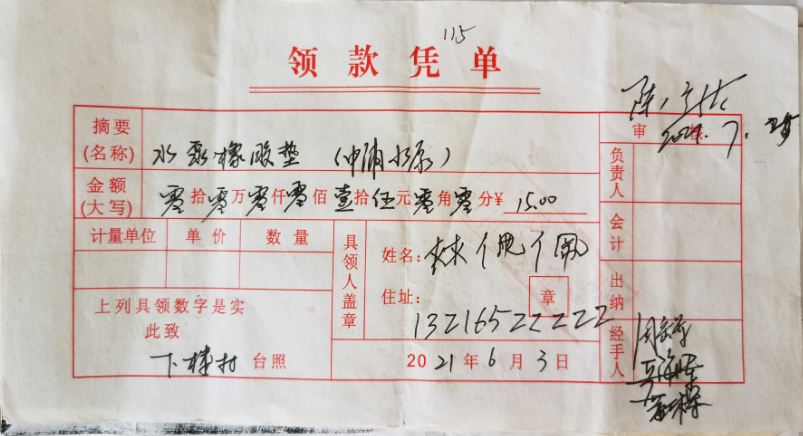 115
领款凭单
摘要
(名称)
水泵橡胶垫 (冲浦水泵)
金额
(大写)
零拾零万零仟零佰壹拾伍元零角零分¥ 15.00
计量单位 单价 数量
上列具领数字是实
此致
下 村 台照
具领人盖章
姓名:
住址:
章
13216522222
2021年6月3日
审
2021.7.
负责人
会计
出纳
经手人